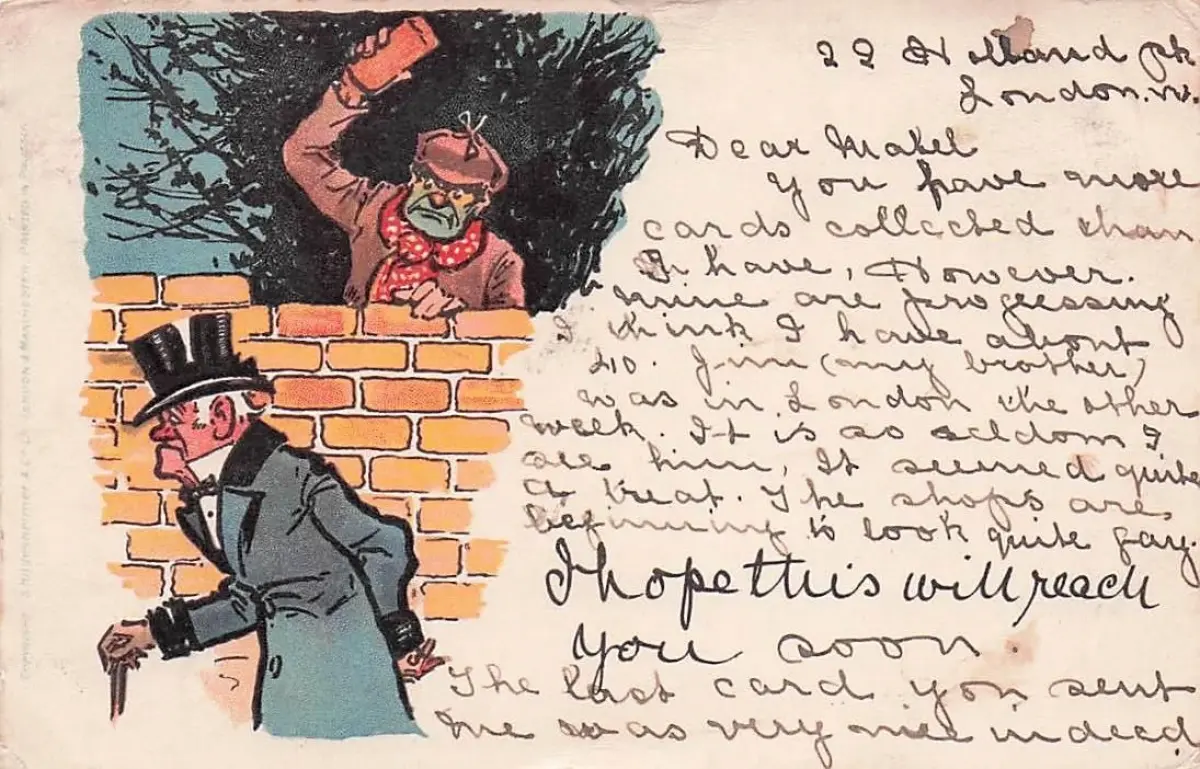 22 Holland pk
London. W.
Dear Mabel
You have more
cards collected than
I have, However.
mine are progressing
I think I have about
40. Jim (my brother)
was in London the other
week. It is so seldom I
see him, It seemed quite
a treat. The shops are
beginning to look quite gay.
I hope this will reach
you soon.
The last card you sent
me was very nice indeed